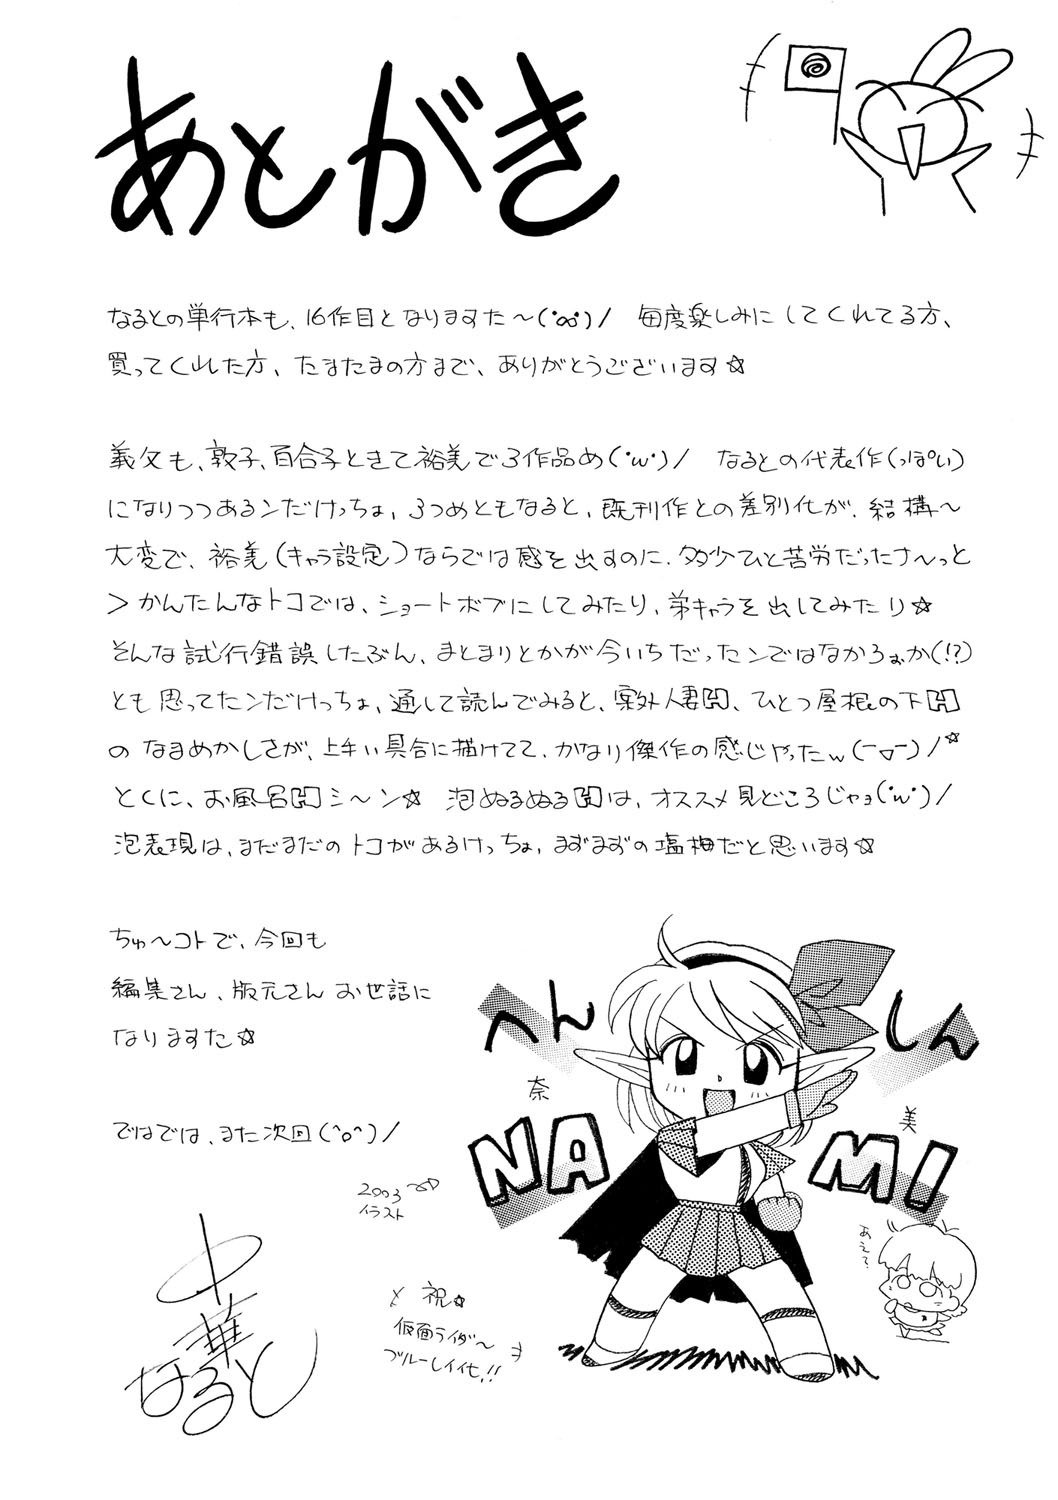 あとがき
なるとの単行本も、16作目となりますた～(°∞°)/　毎度楽しみにしてくれてる方、
買ってくれた方、たまたまの方まで、ありがとうございます☆
義父も、敦子、百合子ときて裕美で3作品め(･w･)/　なるとの代表作(っぽい)
になりつつあるンだけっちょ、3つめともなると、既刊作との差別化が、結構～
大変で、裕美(キャラ設定)ならでは感を出すのに、多少ひと苦労だったナ～っと
＞かんたんなトコでは、ショートボブにしてみたり、弟キャラを出してみたり☆
そんな試行錯誤したぶん、まとまりとかが今いちだったンではなかろぉか(!?)
とも思ってたンだけっちょ、通して読んでみると、案外人妻H、ひとつ屋根の下H
のなまめかしさが、上手い具合に描けてて、かなり傑作の感じやったw(￣▽￣)/*
とくに、お風呂Hシ～ン☆　泡ぬるぬるHは、オススメ見どころじゃョ('w')/
泡表現は、まだまだのトコがあるけっちょ、まずまずの塩梅だと思います☆
ちゅ～コトで、今回も
編集さん、版元さんお世話に
なりますた☆
ではでは、また次回(^o^)/
へんしん
奈 美
NAMI
2003
イラスト
あえて?
祝☆
仮面ライダ～
ブルーレイ化!!
中華なると